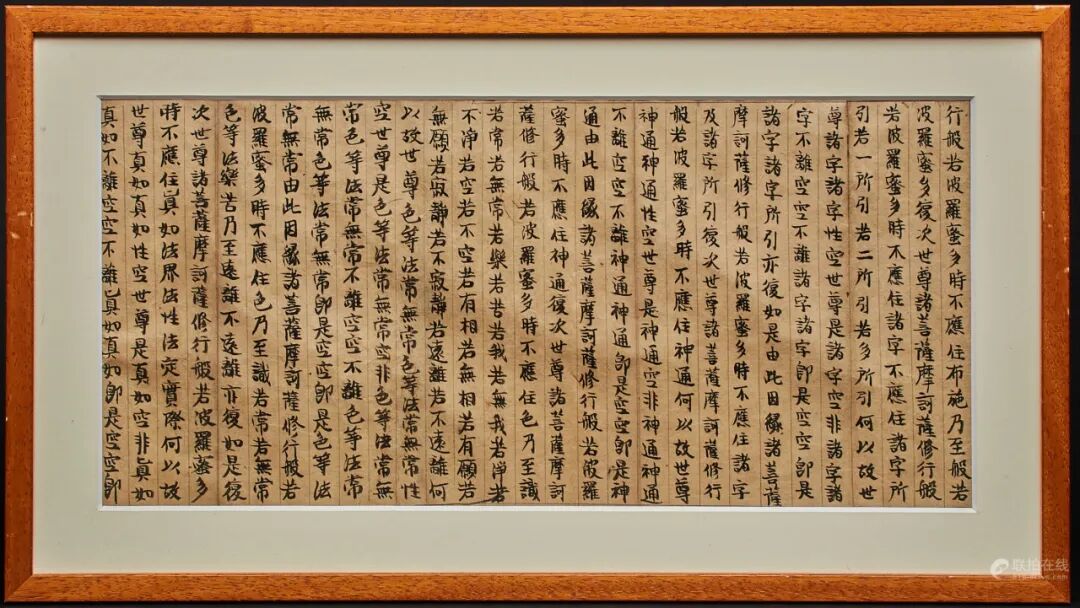 行般若波羅蜜多時不應住布施乃至般若
波羅蜜多復次世尊諸菩薩摩訶薩修行般
若波羅蜜多時不應住諸字不應住諸字所
引若一所引若二所引若多所引何以故世
尊諸字諸字性空世尊是諸字空非諸字諸
字不離空空不離諸字諸字即是空空即是
諸字諸字所引亦復如是由此因緣諸菩薩
摩訶薩修行般若波羅蜜多時不應住諸字
及諸字所引復次世尊諸菩薩摩訶薩修行
般若波羅蜜多時不應住神通何以故世尊
神通神通性空世尊是神通空非神通神通
不離空空不離神通神通即是空空即是神
通由此因緣諸菩薩摩訶薩修行般若波羅
蜜多時不應住神通復次世尊諸菩薩摩訶
薩修行般若波羅蜜多時不應住色乃至識
若常若無常若樂若苦若我若無我若淨若
不淨若空若不空若有相若無相若有願若
無願若寂靜若不寂靜若遠離若不遠離何
以故世尊色等法常無常色等法常無常性
空世尊是色等法常無常空非色等法常無
常色等法常無常不離空空不離色等法常
無常色等法常無常即是空空即是色等法
常無常由此因緣諸菩薩摩訶薩修行般若
波羅蜜多時不應住色乃至識若常若無常
色等法樂苦乃至遠離不遠離亦復如是復
次世尊諸菩薩摩訶薩修行般若波羅蜜多
時不應住真如法界法性法定實際何以故
世尊真如真如性空世尊是真如空非真如
真如不離空空不離真如真如即是空空即
联拍在线